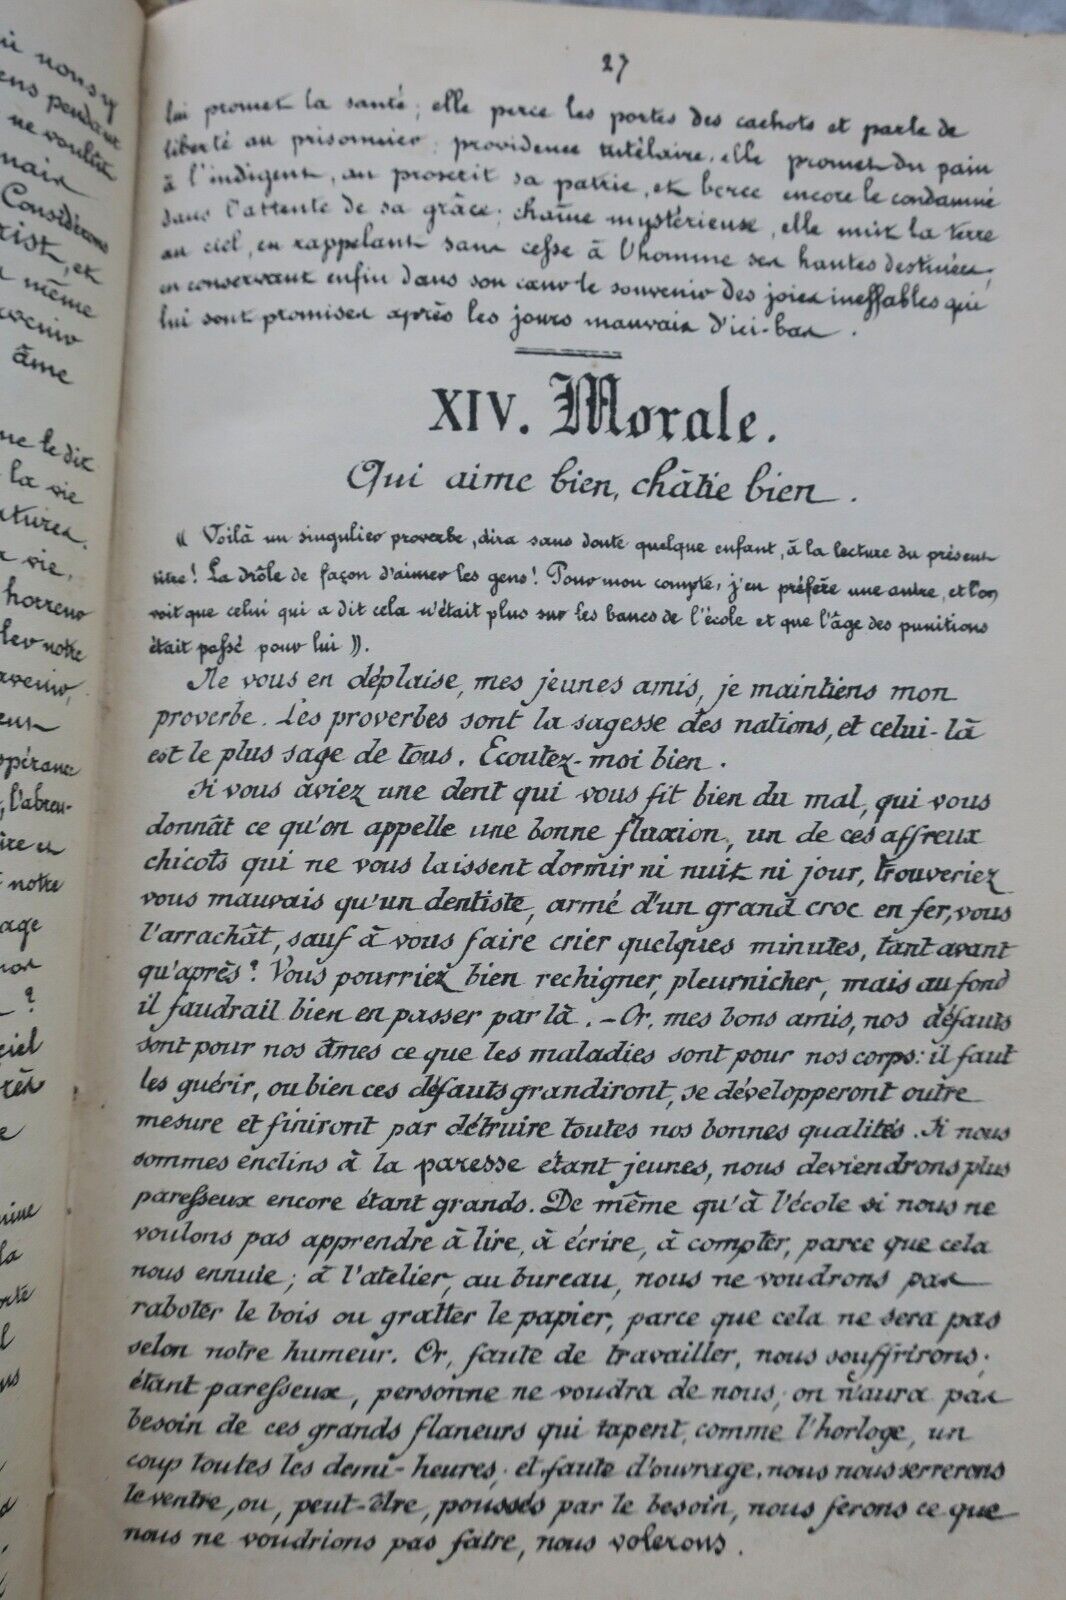 27
lui promet la santé; elle perce les portes des cachots et parle de
liberté au prisonnier; providence tutélaire, elle promet du pain
à l'indigent, au proscrit sa patrie, et berce encore le condamné
dans l'attente de sa grâce; chaîne mystérieuse, elle unit la terre
au ciel, en rappelant sans cesse à l'homme ses hautes destinées,
en conservant enfin dans son cœur le souvenir des joies ineffables qui
lui sont promises après les jours mauvais d'ici-bas.
XIV. Morale.
Qui aime bien, châtie bien.
« Voilà un singulier proverbe, dira sans doute quelque enfant, à la lecture du présent
titre! La drôle de façon d'aimer les gens! Pour mon compte, j'en préfère une autre, et l'on
voit que celui qui a dit cela n'était plus sur les bancs de l'école et que l'âge des punitions
était passé pour lui ».
Ne vous en déplaise, mes jeunes amis, je maintiens mon
proverbe. Les proverbes sont la sagesse des nations, et celui-là
est le plus sage de tous. Ecoutez-moi bien.
Si vous aviez une dent qui vous fit bien du mal, qui vous
donnât ce qu'on appelle une bonne fluxion, un de ces affreux
chicots qui ne vous laissent dormir ni nuit ni jour, trouveriez
vous mauvais qu'un dentiste, armé d'un grand croc en fer, vous
l'arrachât, sauf à vous faire crier quelques minutes, tant avant
qu'après? Vous pourriez bien rechigner, pleurnicher, mais au fond
il faudrait bien en passer par là. – Or, mes bons amis, nos défauts
sont pour nos âmes ce que les maladies sont pour nos corps: il faut
les guérir, ou bien ces défauts grandiront, se développeront outre
mesure et finiront par détruire toutes nos bonnes qualités. Si nous
sommes enclins à la paresse étant jeunes, nous deviendrons plus
paresseux encore étant grands. De même qu'à l'école si nous ne
voulons pas apprendre à lire, à écrire, à compter, parce que cela
nous ennuie; à l'atelier, au bureau, nous ne voudrons pas
raboter le bois ou gratter le papier, parce que cela ne sera pas
selon notre humeur. Or, faute de travailler, nous souffrirons;
étant paresseux, personne ne voudra de nous; on n'aura pas
besoin de ces grands flaneurs qui tapent, comme l'horloge, un
coup toutes les demi-heures; et, faute d'ouvrage, nous nous serrerons
le ventre, ou, peut-être, poussés par le besoin, nous ferons ce que
nous ne voudrions pas faire, nous volerons.